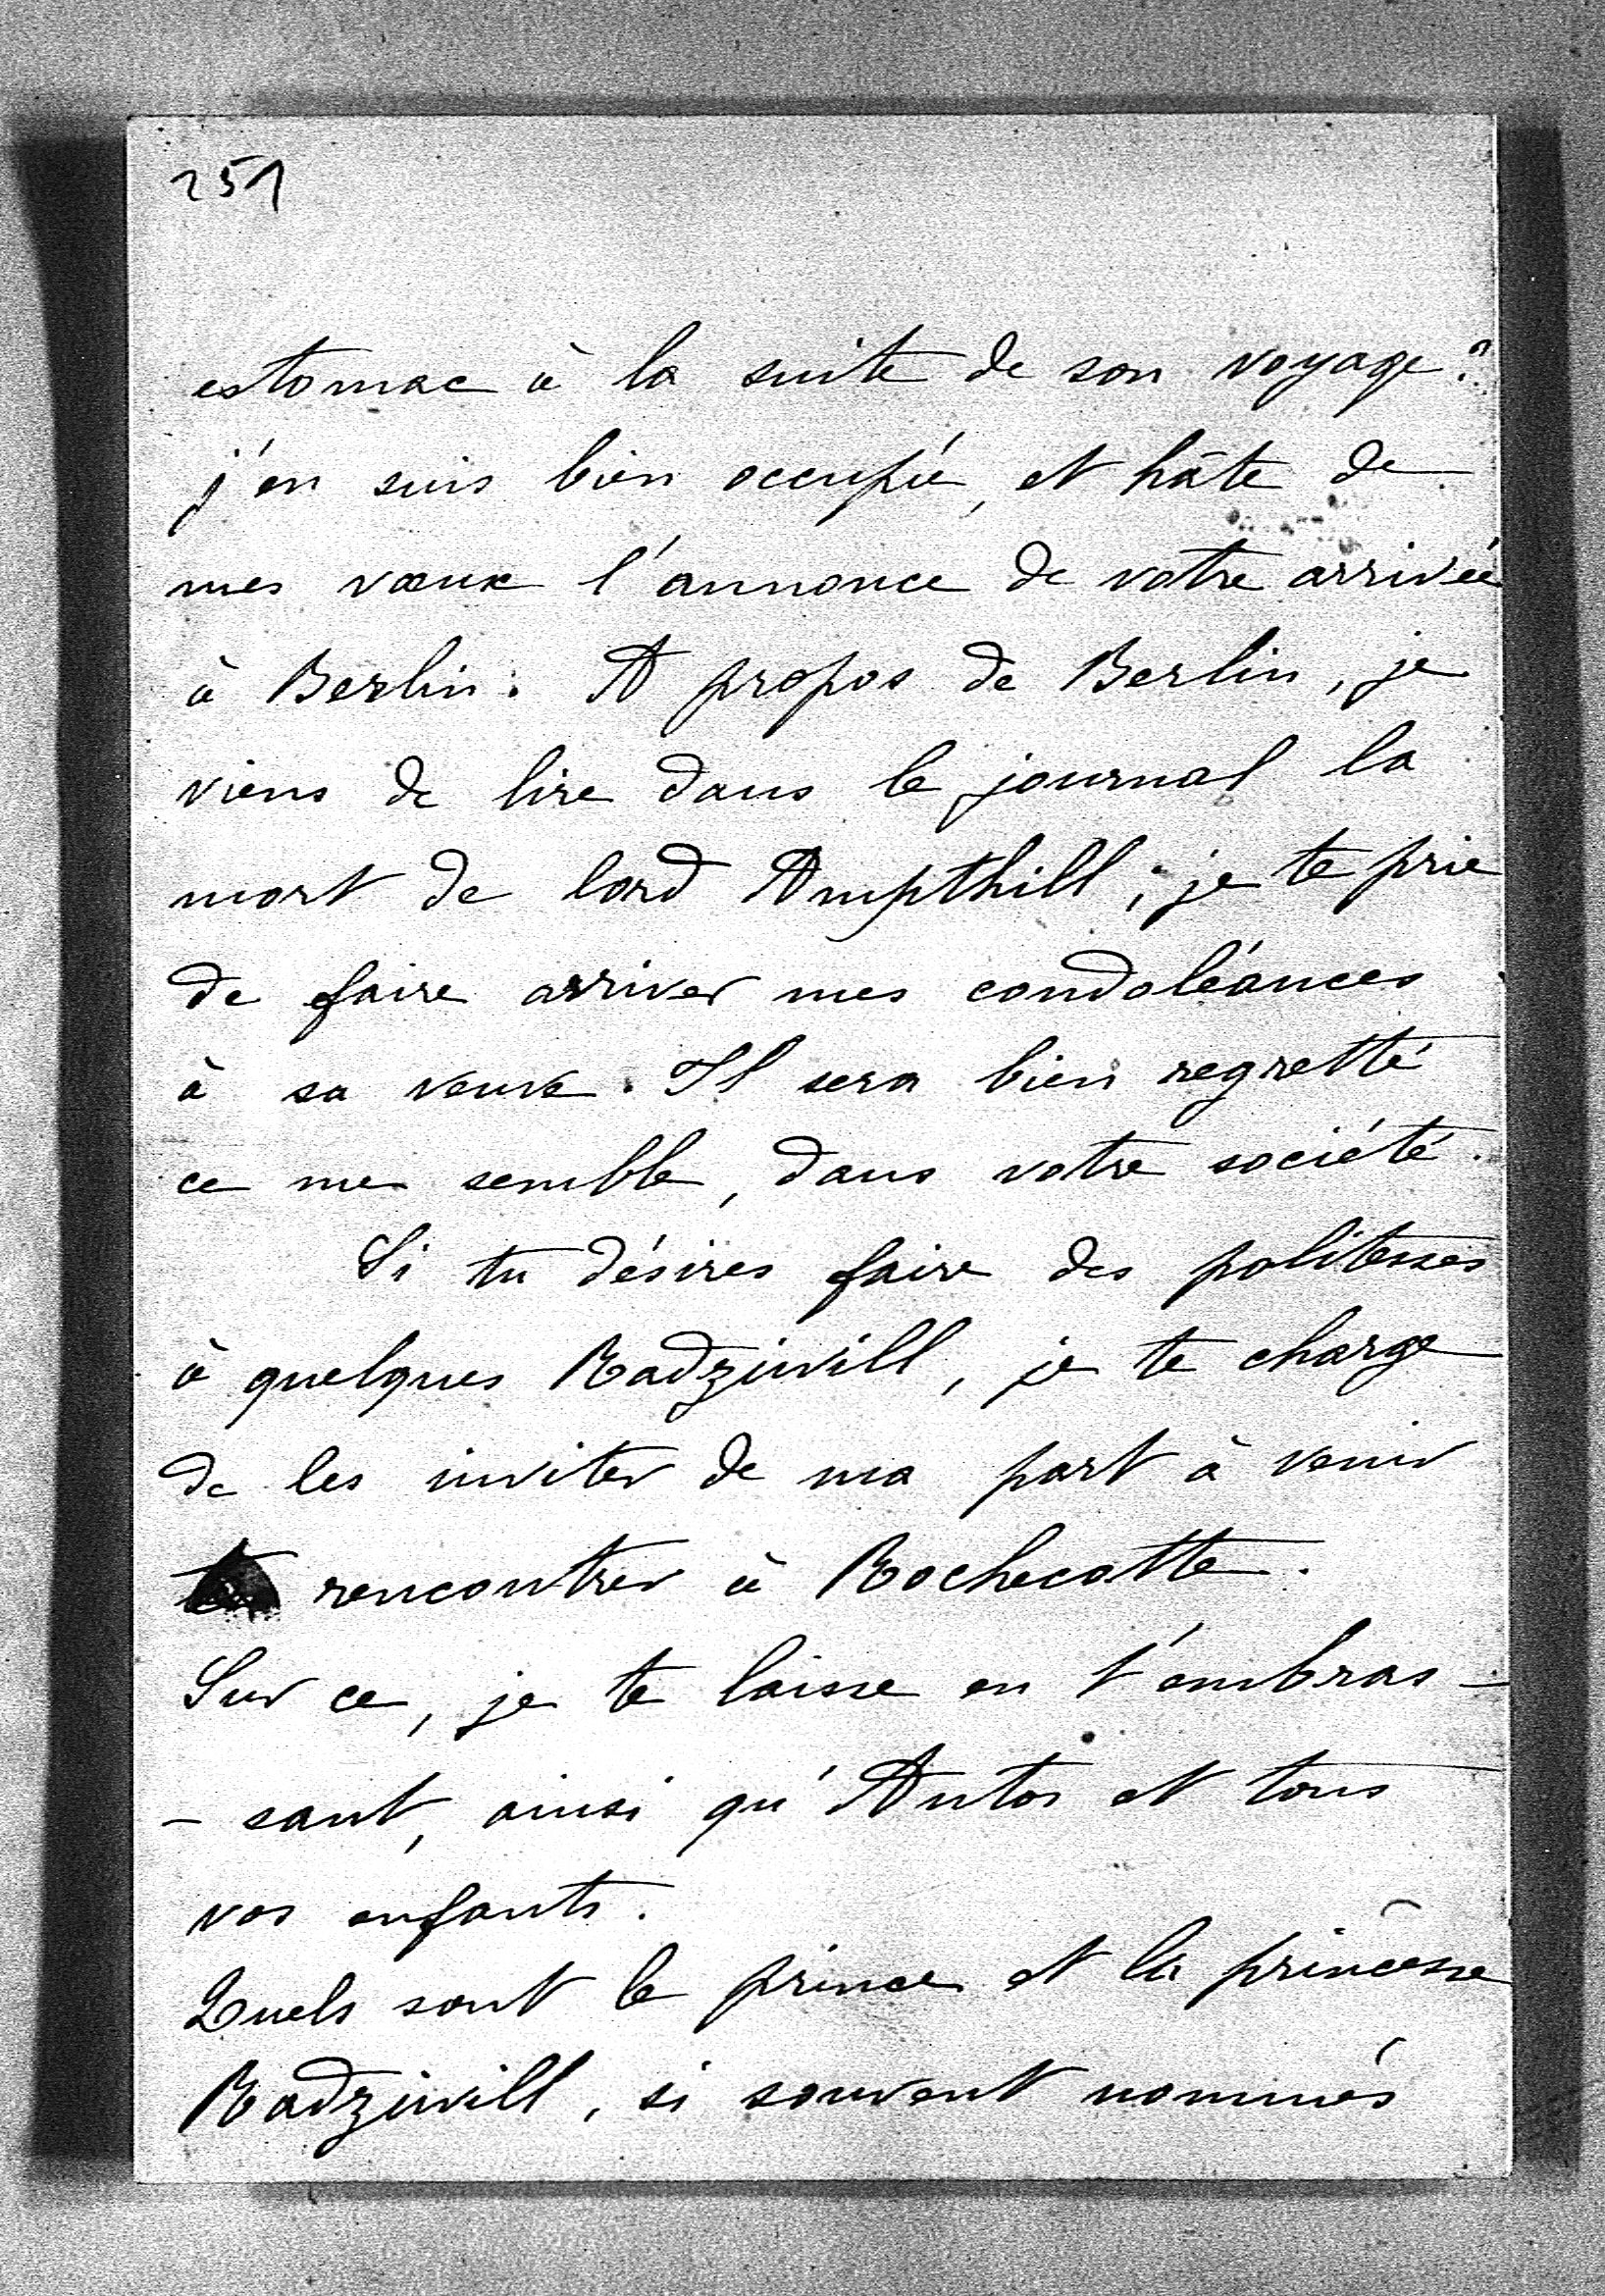 251
estomac à la suite de son voyage?
j'en suis bien occupée, et hâte de
mes vœux l'annonce de votre arrivée
à Berlin. A propos de Berlin, je
viens de lire dans le journal la
mort de lord Ampthill; je te prie
de faire arriver mes condoléances
à sa veuve. Il sera bien regretté
ce me semble, dans votre société.
Si tu désires faire des politesses
à quelques Radziwill, je te charge
de les inviter de ma part à venir
te rencontrer à Rochecotte.
Sur ce, je te laisse en t'embras-
- sant, ainsi qu'Antos et tous
vos enfants.
Quels sont le prince et la princesse
Radziwill, si souvent nommés